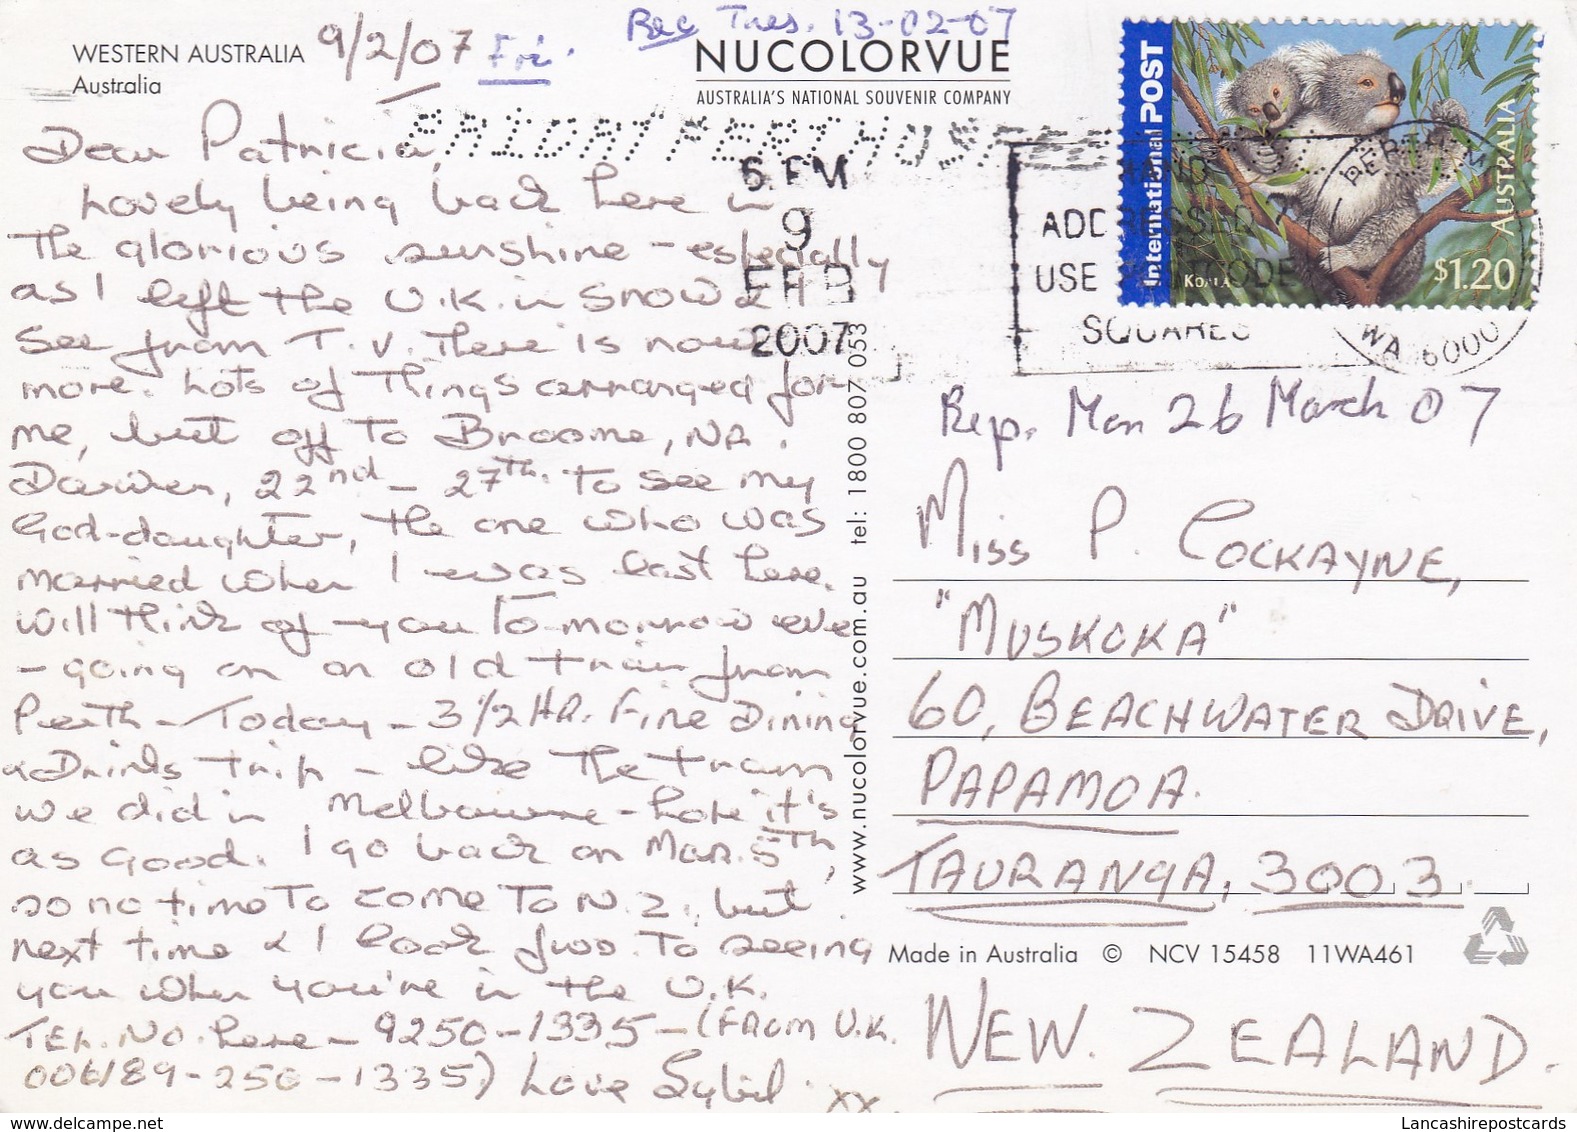 WESTERN AUSTRALIA
Australia
9/2/07 Fri.
Rec Tues. 13-02-07
NUCOLORVUE
AUSTRALIA'S NATIONAL SOUVENIR COMPANY
Dear Patricia,
Lovely being back here in
the glorious sunshine - especially
as I left the U.K. in snow & I
see from T.V. There is now
more. Lots of Things arranged for
me, but off To Broome, NR.
Darwen, 22nd - 27th. To see my
God-daughter, the one who was
married when I was last here.
Will think of you To-morrow eve
- going on an old train from
Perth - Today - 3 1/2 HR. Fine Dining
& Drinks trip - like The tram
we did in Melbourne - hope it's
as Good. I go back on Mar. 5th,
so no time To come To N.Z. but
next time & I look fwd. To seeing
you when you're in the U.K.
TEL. NO. here - 9250-1335 - (FROM U.K.
00 61 89-250-1335) Love Sybil
xx
6 PM
9
FEB
2007
HAND
ADDRESSED?
USE POSTCODE
SQUARES
PERTH
WA 6000
International POST
AUSTRALIA
KOALA
$1.20
www.nucolorvue.com.au tel: 1800 807 053
Rep. Mon 26 March 07
Miss P. COCKAYNE,
"MUSKOKA"
60, BEACHWATER DRIVE,
PAPAMOA.
TAURANGA, 3003.
Made in Australia © NCV 15458 11WA461
NEW. ZEALAND.
delcampe.net
Lancashirepostcards